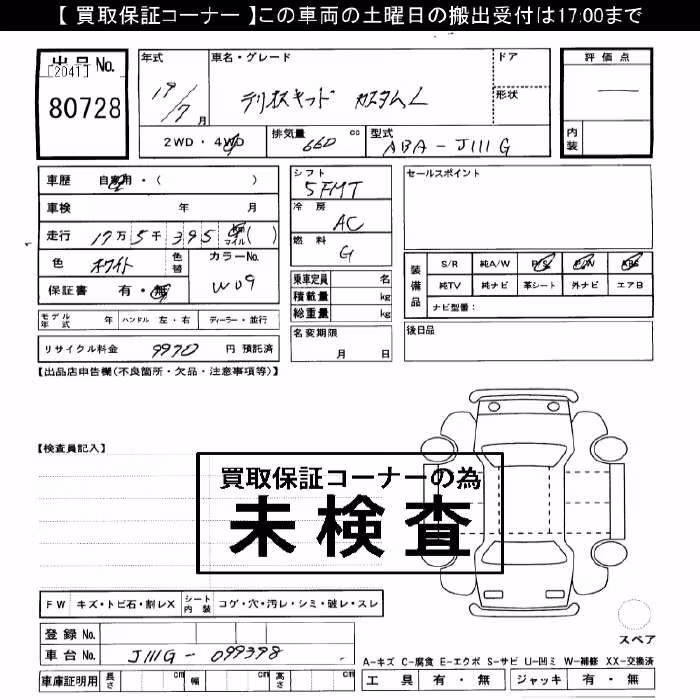 【 買取保証コーナー 】この車両の土曜日の搬出受付は17:00まで
出品No.
[2041]
80728
年式 車名・グレード ドア 評価点
19/7月 テリオスキッド カスタムL 形状
2WD・4WD 排気量 660 cc 型式 ABA-J111G 内装
車歴 自家用・( )
シフト 5FMT
セールスポイント
車検 年 月
冷房 AC
走行 17万5千395 km マイル( )
燃料 G
色 ホワイト 色替 カラーNo. W09
保証書 有・無
乗車定員 名
積載量 kg
総重量 kg
装備品 S/R 純A/W P/S P/W ABS
純TV 純ナビ 革シート 外ナビ エアB
ナビ型番:
モデル年式 年 ハンドル 左・右 ディーラー・並行
名変期限 月 日
後日品
リサイクル料金 9970 円 預託済
【出品店申告欄(不良箇所・欠品・注意事項等)】
【検査員記入】
買取保証コーナーの為
未検査
FW キズ・トビ石・割レX シート内装 コゲ・穴・汚レ・シミ・破レ・スレ
登録No.
車台No. J111G-099398
スペア
A-キズ C-腐食 E-エクボ S-サビ U-凹ミ W-補修 XX-交換済
車庫証明用 長さ cm 幅 cm 高さ cm
工具 有・無 ジャッキ 有・無